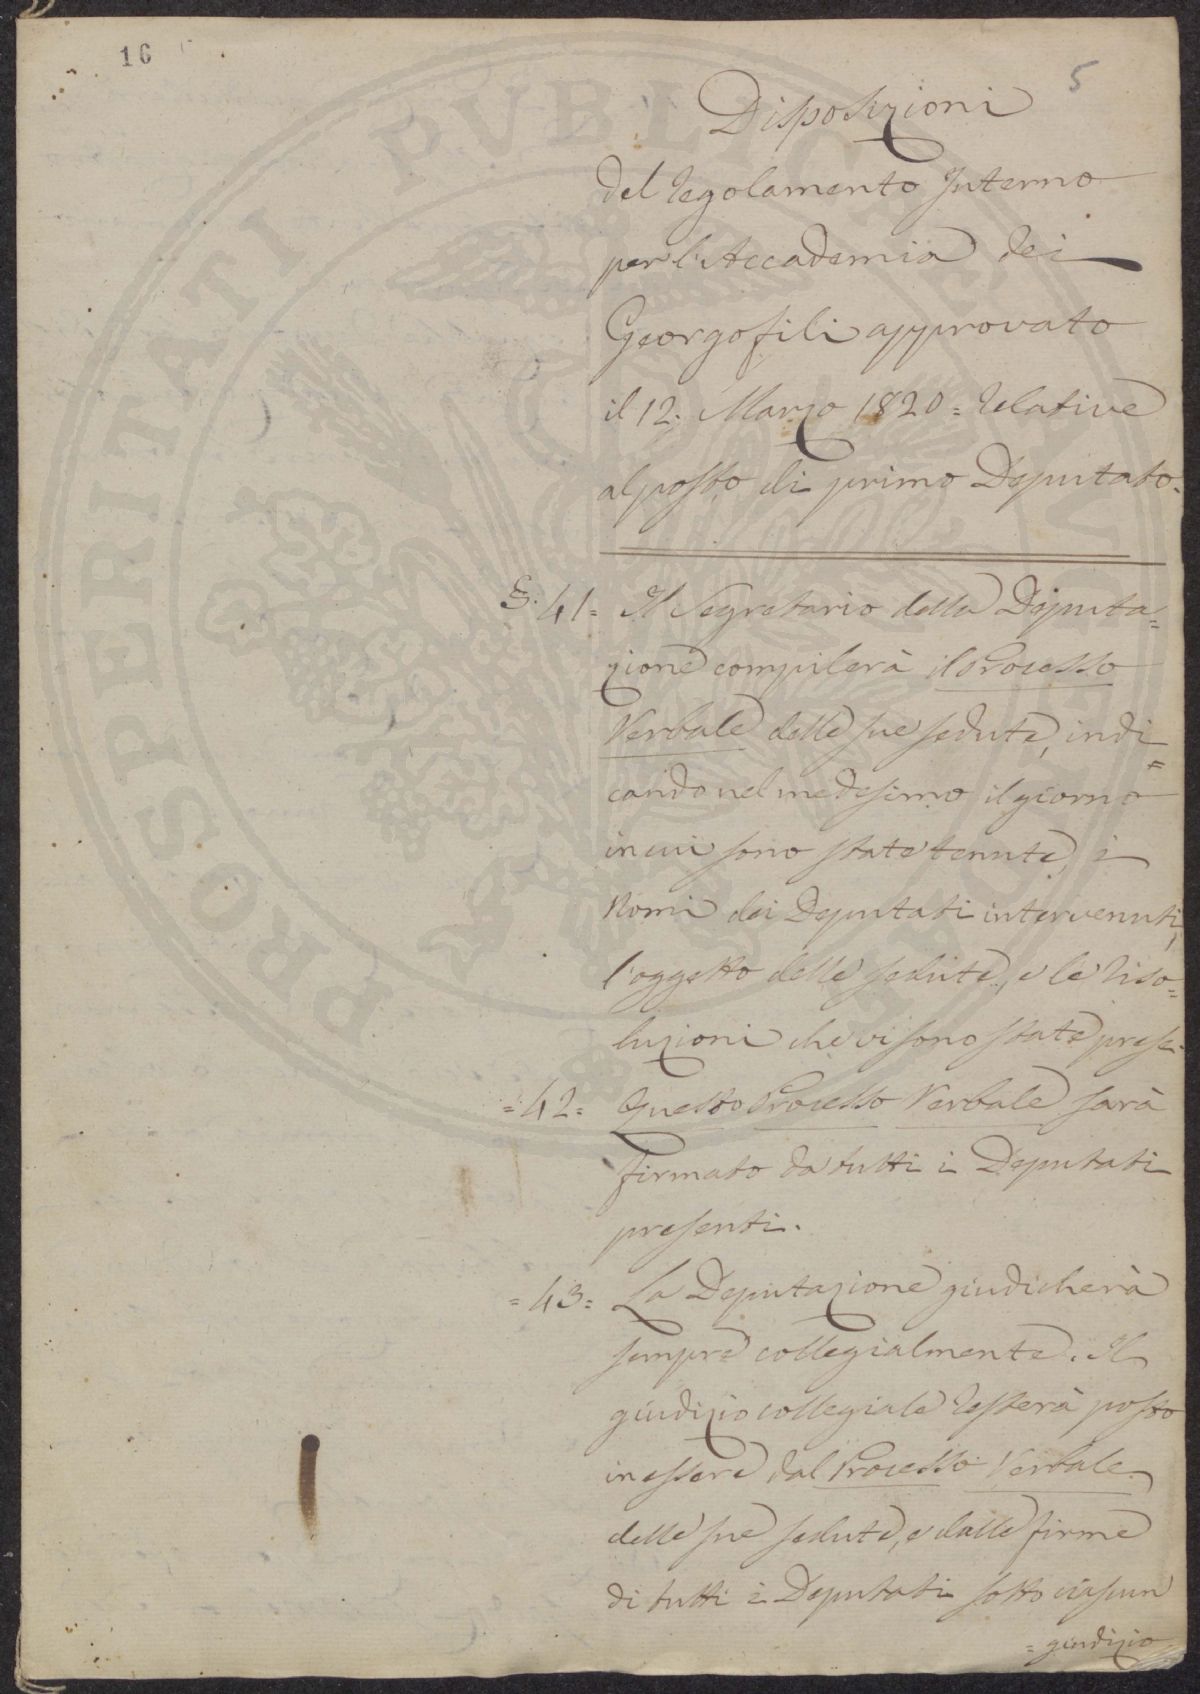 16
5
Disposizioni
del Regolamento Interno
per l'Accademia dei
Georgofili approvato
il 12. Marzo 1820 = Relative
al posto di primo Deputato.
§. 41 = Il Segretario della Deputa=
zione compilerà il Processo
Verbale delle sue sedute, indi=
cando nel medesimo il giorno
in cui sono state tenute, i
Nomi dei Deputati intervenuti,
l'oggetto delle sedute, e le riso=
luzioni che vi sono state prese.
= 42 = Questo Processo Verbale sarà
firmato da tutti i Deputati
presenti.
= 43 = La Deputazione giudicherà
sempre collegialmente. Il
giudizio collegiale resterà posto
in essere dal Processo Verbale
delle sue sedute, e dalle firme
di tutti i Deputati sotto ciascun
= giudizio
PROSPERITATI PVBLICAE AVGENDAE